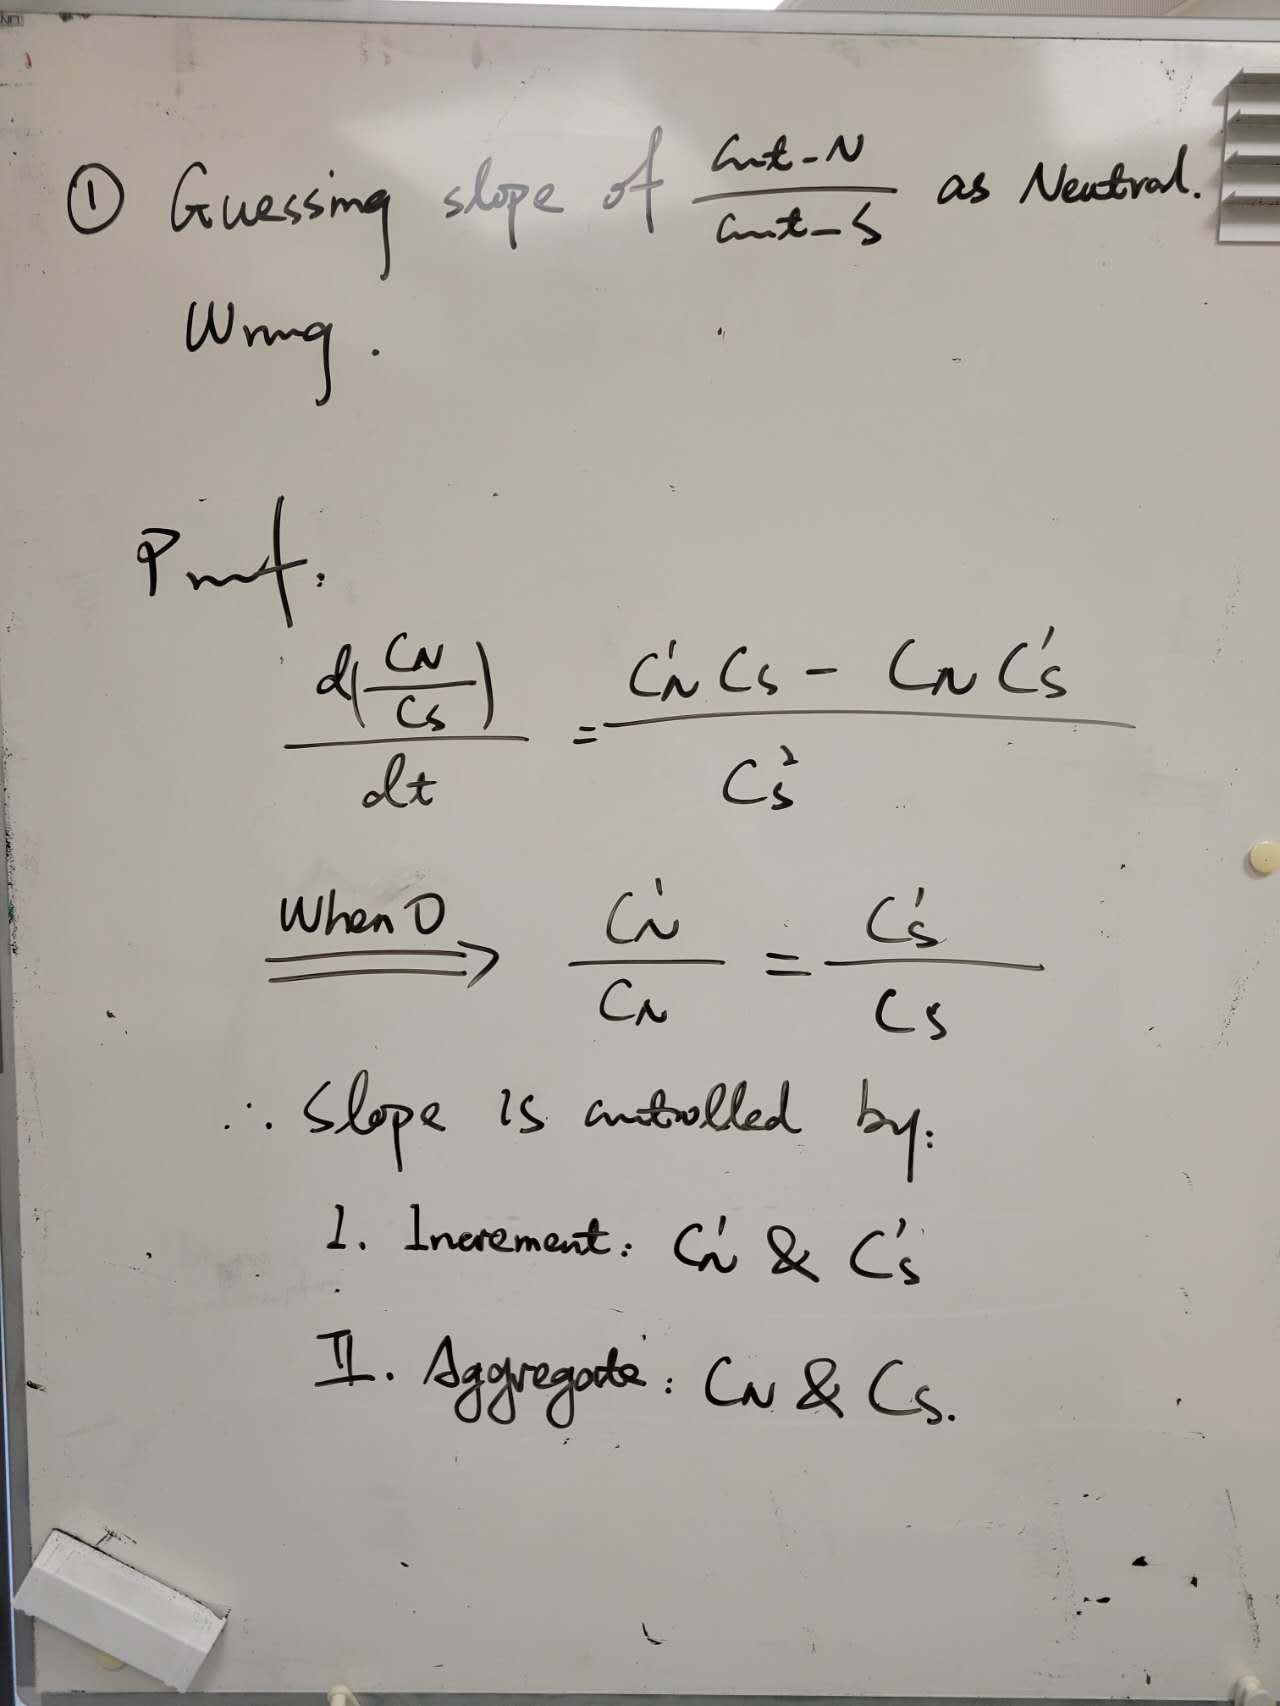 ① Guessing slope of cnt-N / cnt-S as Neutral.
Wrong.
Proof:
d(CN/CS)/dt = (C'N CS - CN C'S) / CS²
When 0 ⟹ C'N/CN = C'S/CS
∴ Slope is controlled by:
I. Increment: C'N & C'S
II. Aggregate: CN & CS.